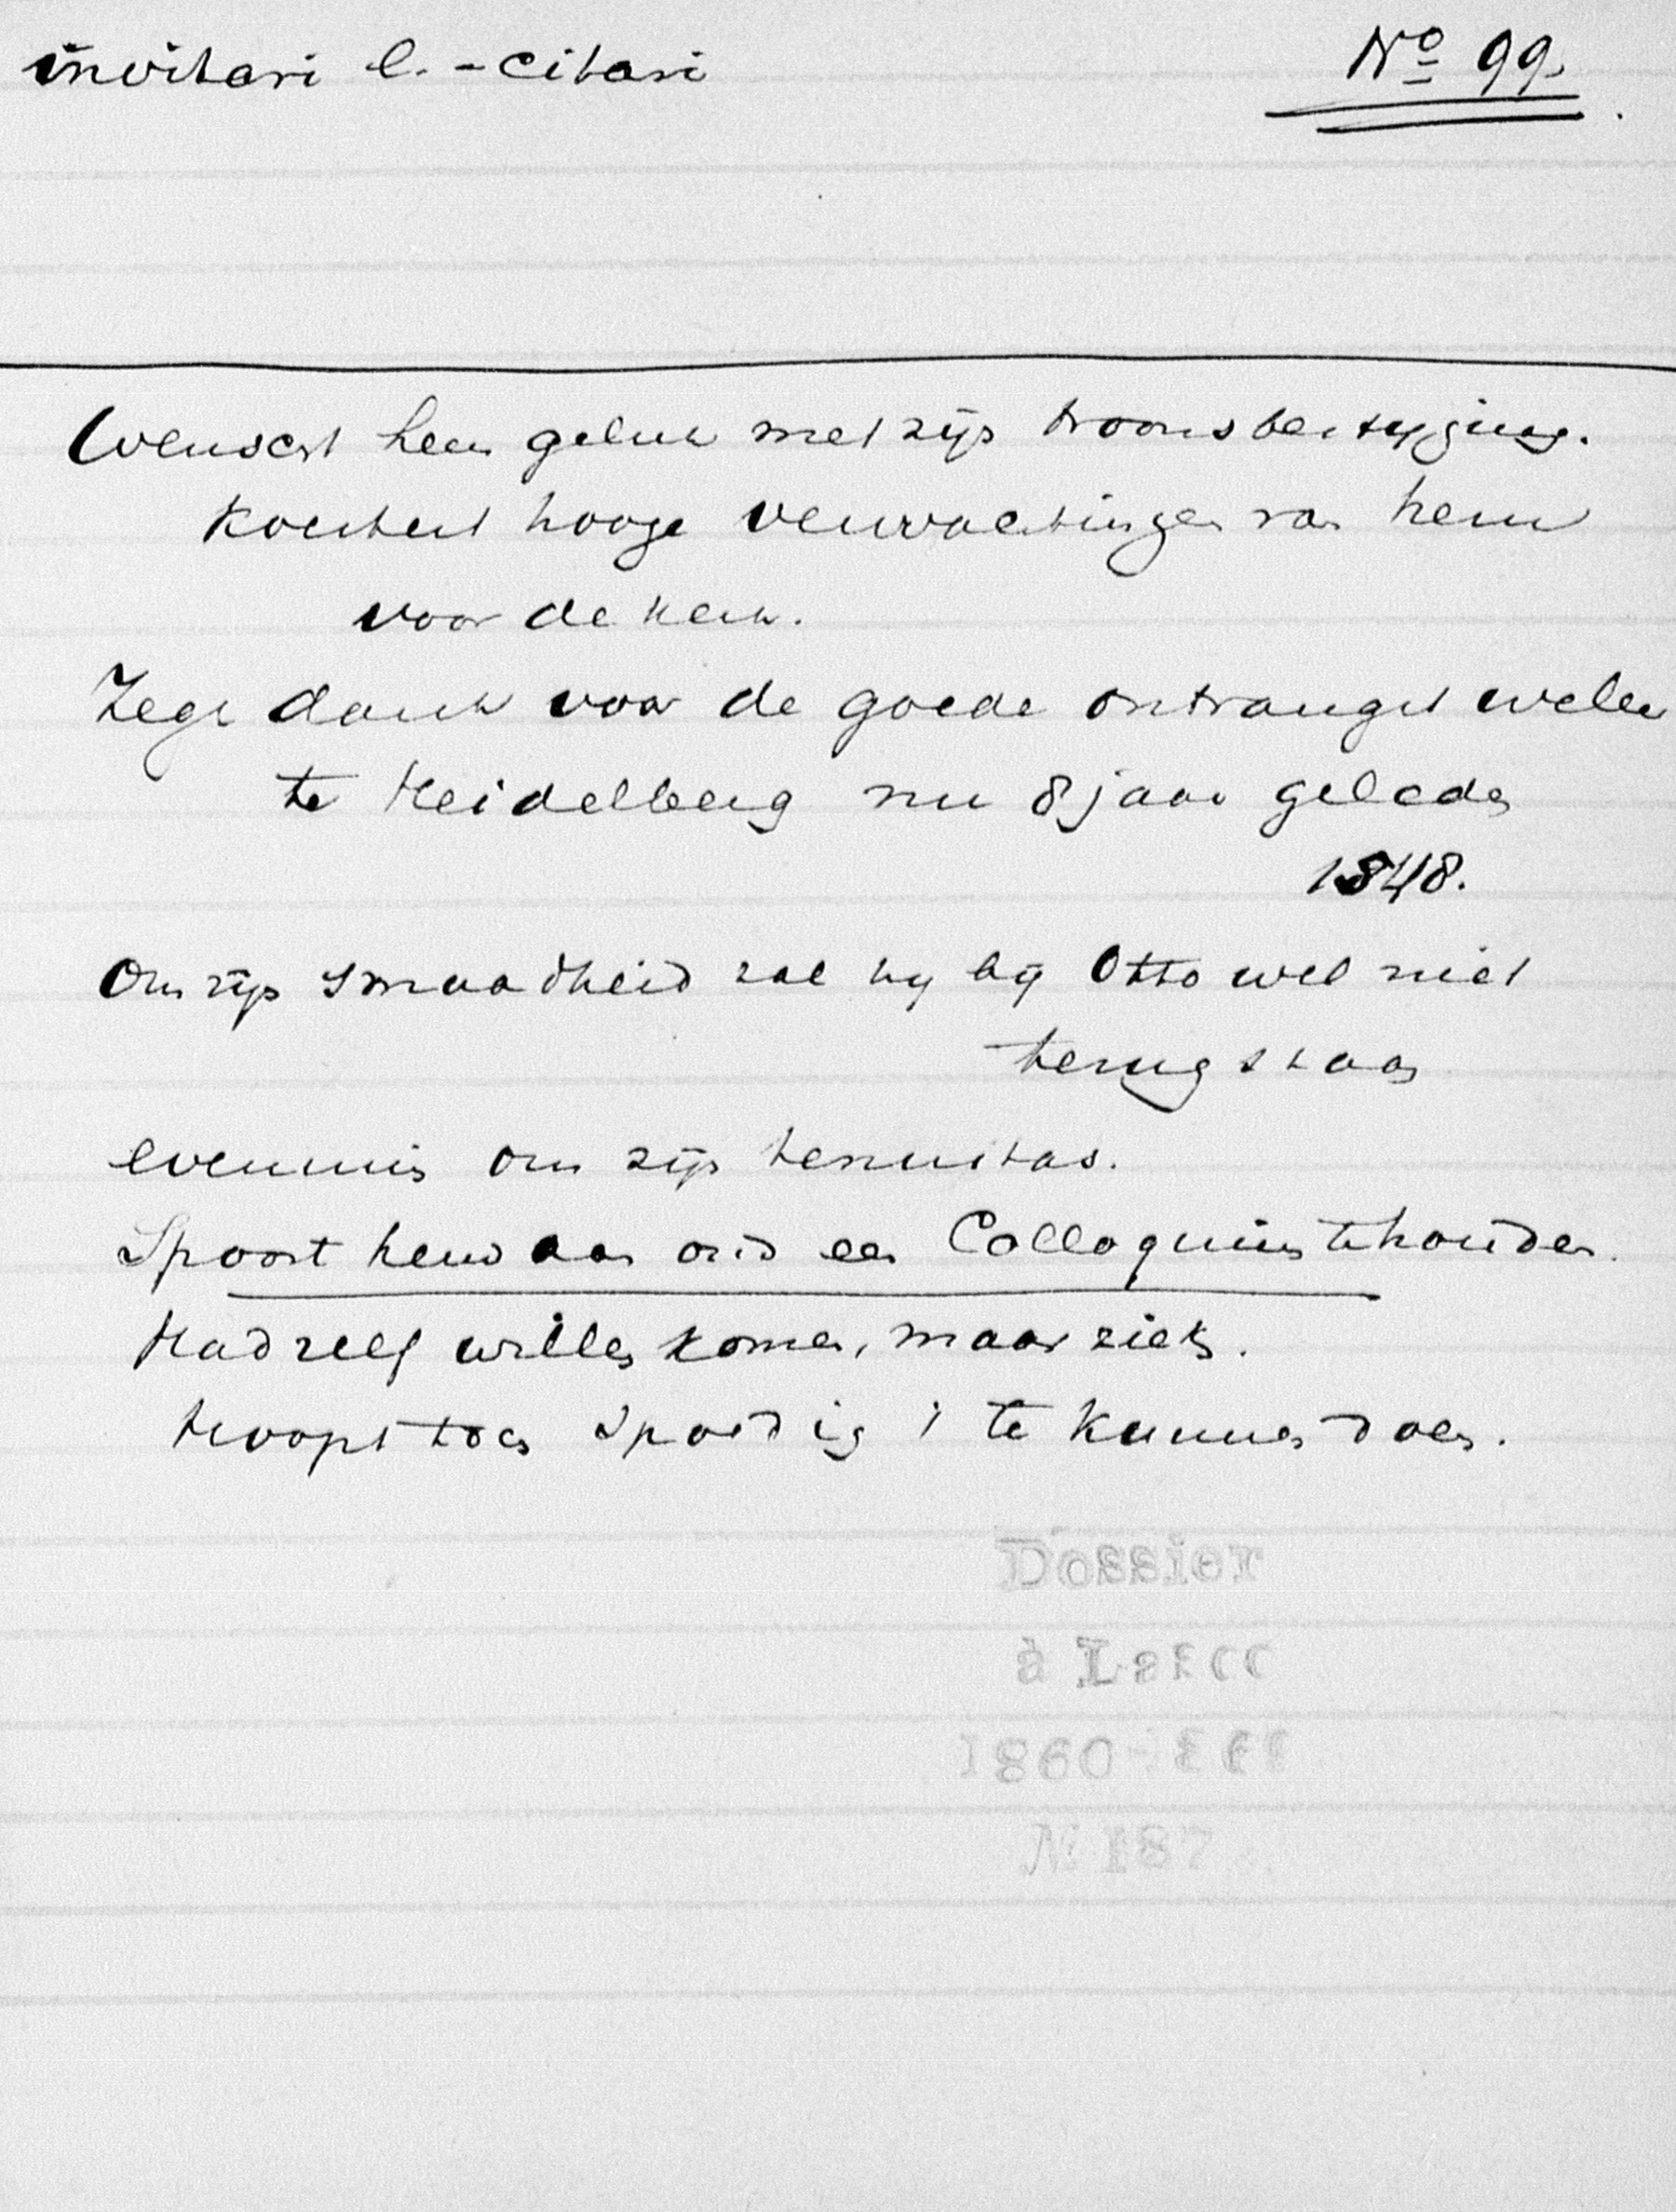 invitari l. - citari
Nº 99.
Wenscht hem geluk met zijn troonsbestijging.
Koestert hooge verwachtingen van hem
voor de kerk.
Zegt dank voor de goede ontvangst welke
te Heidelberg nu 8 jaar geleden
1548.
Om zijn smaadheid zal hij bij Otto wel niet
terugstaan
evenmin om zijn tenuitas.
Spoort hem aan ond een Colloquium te houden.
Had zelf willen komen, maar ziek.
Hoopt toch spoedig 't te kunnen doen.
Dossier
à L
1860
№ 187